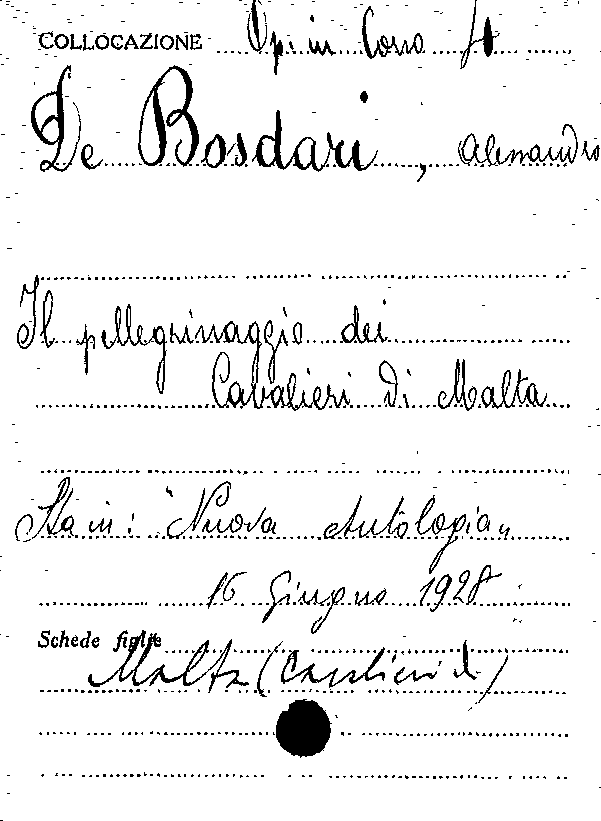 COLLOCAZIONE Op. in Corso
De Bosdari, Alessandro
Il pellegrinaggio dei
Cavalieri di Malta
Sta in: "Nuova Antologia"
16 Giugno 1928
Schede figlie
Malta (Cavalieri di)